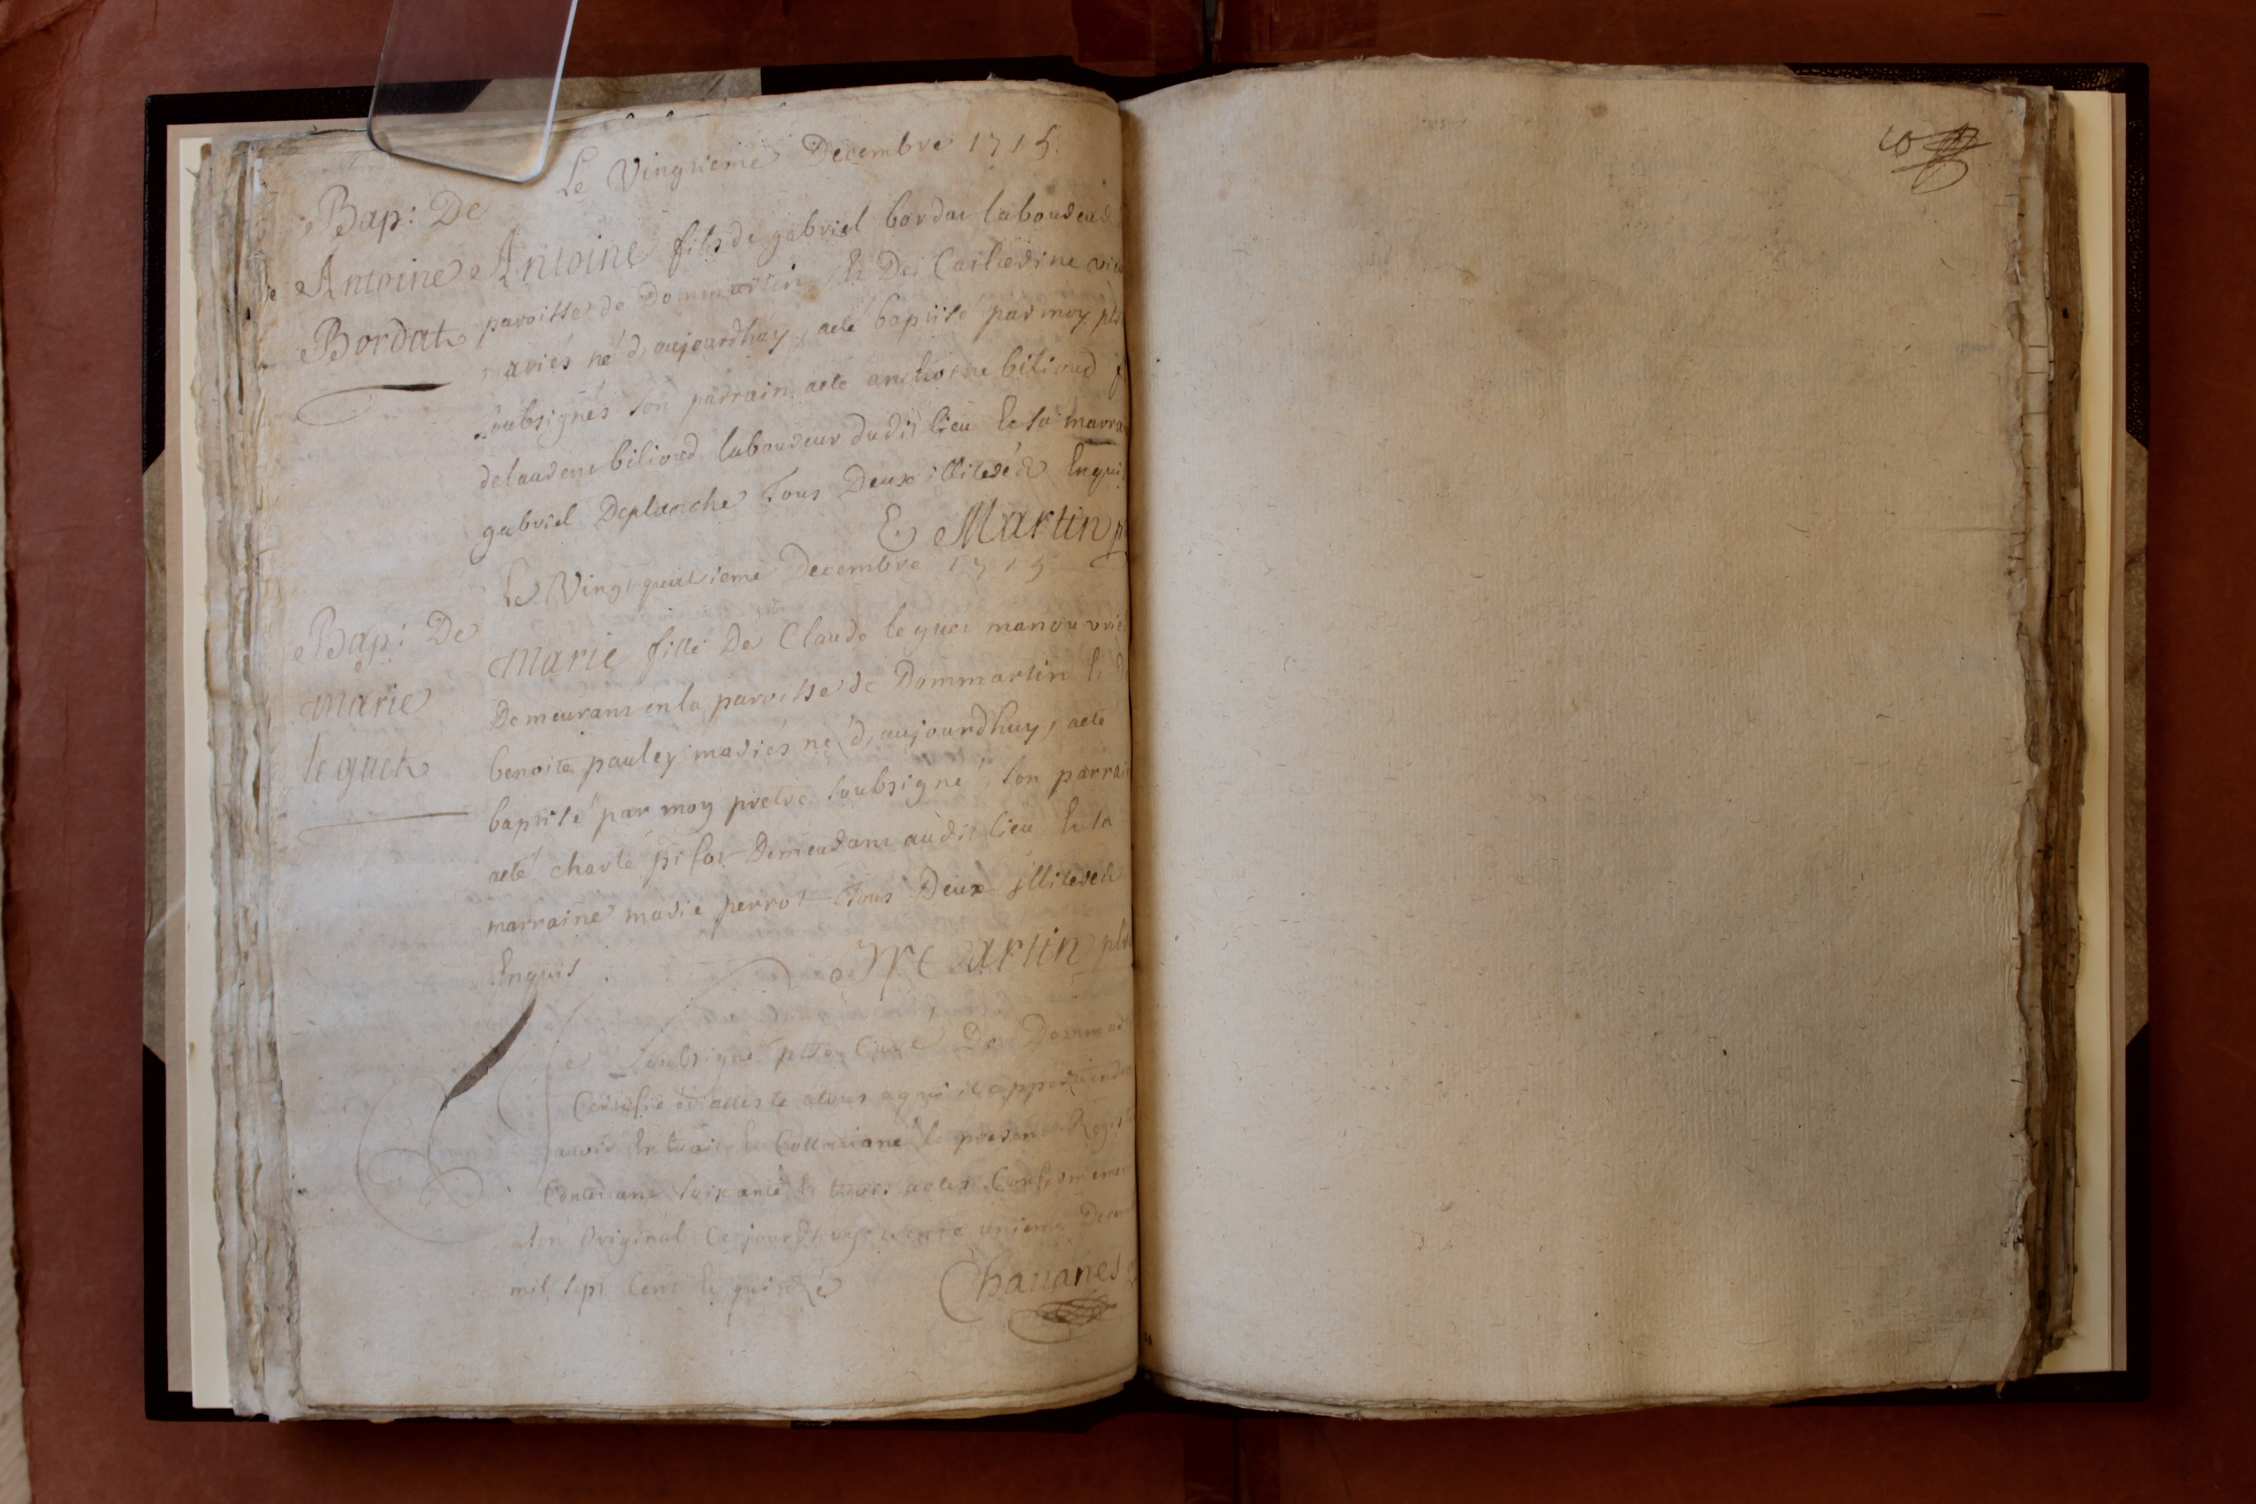 Le Vingtieme Decembre 1715.
Bap: De
Antoine
Bordat
Antoine fils de gabriel bordat laboureur
paroisse de Dommartin & De Catherine
mariés né d'aujourdhuy, aeté baptisé par moy
soubsignés son parrain aete anthoine bilioud
de laurent bilioud laboureur dudit lieu & la marra
gabriel Deplanche tous Deux illiteré Enqui
E Martin
Le Vingt quatrieme Decembre 1715
Bap: De
marie
le guet
Marie fille De Claude le guet manouvrie
Demeurant en la paroisse de Dommartin & D
benoite pauley mariés né d'aujourdhuy, aeté
baptisé par moy pretre soubsigné, son parrai
aeté charle pifot Demeurant audit lieu & la
marraine marie perrot tous Deux illiteré
Enquis.
Martin
Je soubsigné Curé De Dommar
Certifie et atteste atous a qui il appartiendra
avoir Extrait & Collationé le present Regist
Contenant soixante & trois actes Conformement
a son Original Ce jourdhuy trente unieme Decem
mil sept Cent & quinze
Chavanes